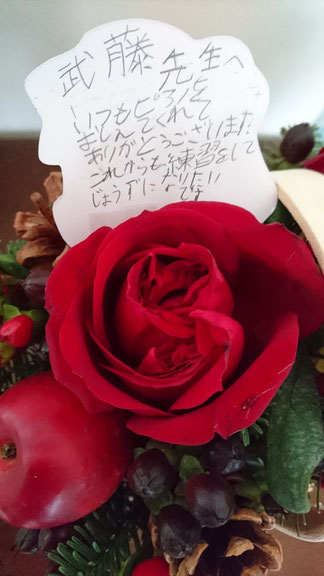 武藤先生へ
いつもピアノを
ましんてくれて
ありがとうございます
これからも練習をして
じょうずになりたい
です